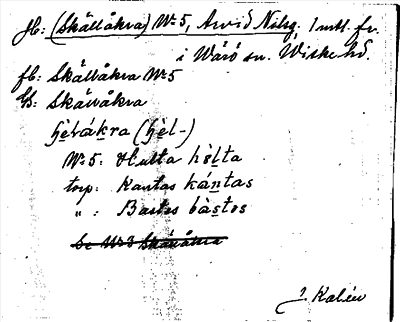 fb: (Skällåkra) Nr 5, Arvid Nilsg, 1 mtl. fr.
i Wärö sn. Wiske hd.
fb: Skällåkra Nr 5
Us: Skäuåkra
hèrákra (hèl-)
Nr 5: Hulta hùlta
torp: Kantas kántas
" : Bastes bàstes
Se Nr 3 Skäuåkra
J. Kalén